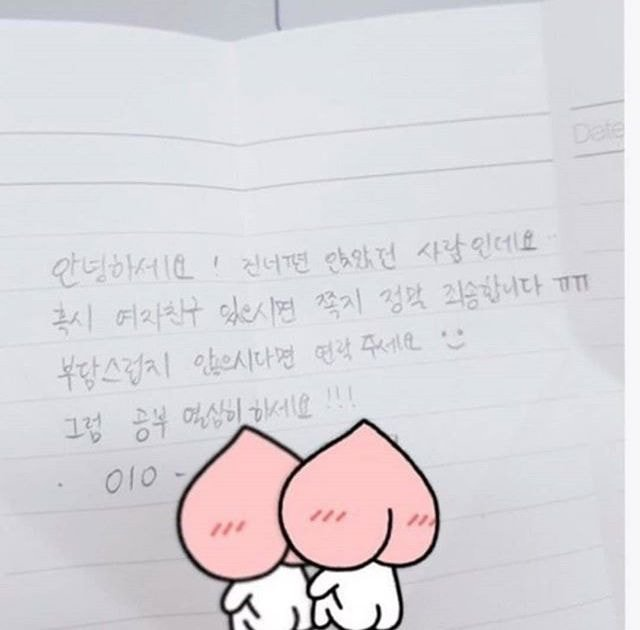 Date
안녕하세요! 건너편 앉았던 사람인데요..
혹시 여자친구 있으시면 쪽지 정말 죄송합니다 ㅠㅠ
부담스럽지 않으시다면 연락주세요 :)
그럼 공부 열심히하세요!!!
· 010 -